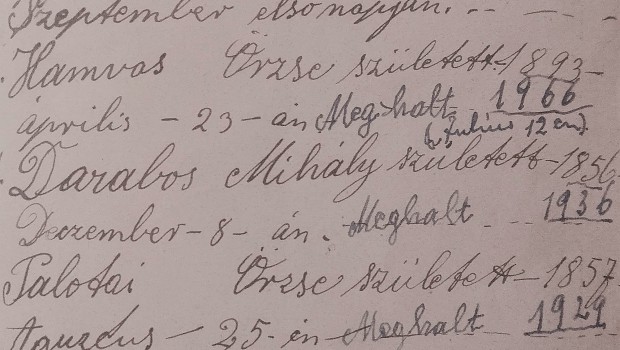 Szeptember első napján.
Hamvas Örzse született 1893
április - 23 - án Meghalt 1966
(Július 12 én).
Darabos Mihály született - 1856
Deczember - 8 - án. Meghalt 1936
Palotai Örzse született - 1857
Aguztus - 25 - én Meghalt 1929